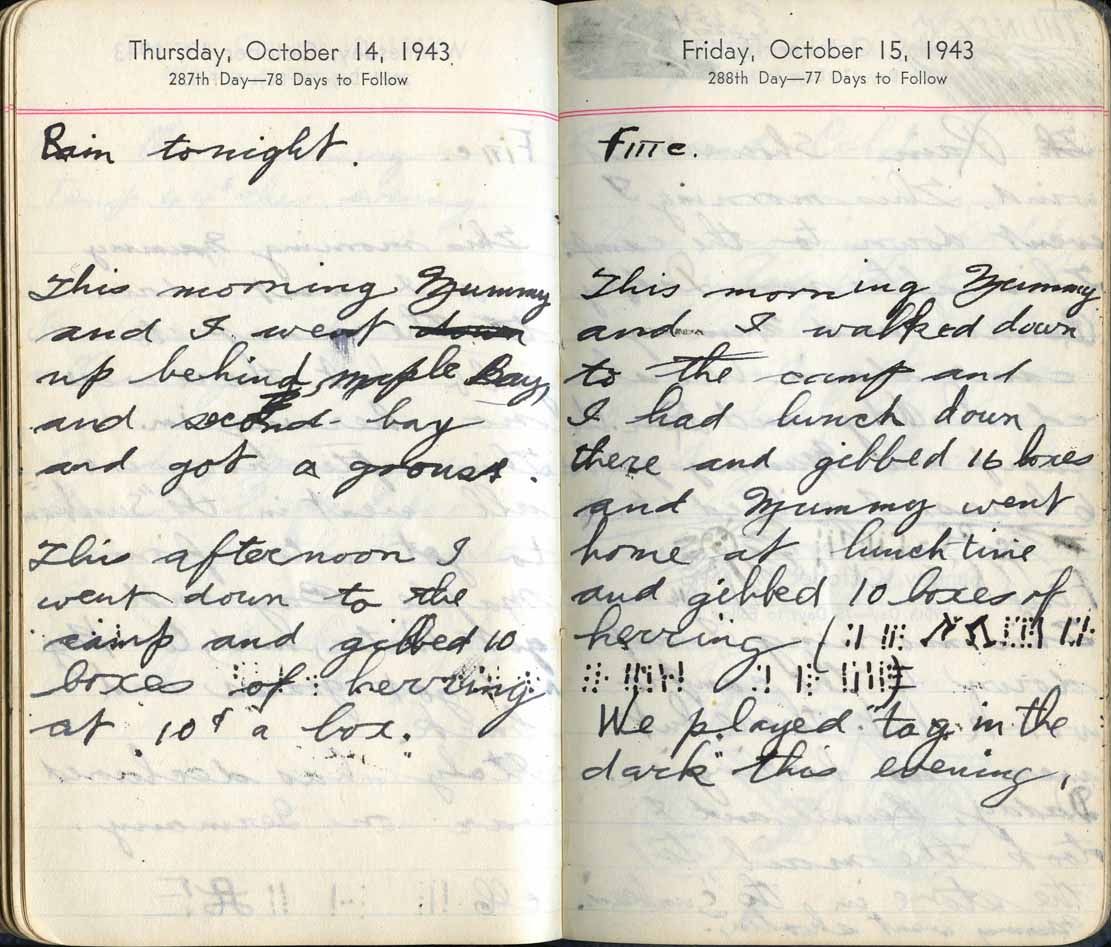 Thursday, October 14, 1943
287th Day—78 Days to Follow
Rain tonight.
This morning Mummy
and I went down
up behind, maple Bay,
and second bay
and got a grouse.
This afternoon I
went down to the
camp and gibbed 10
boxes of herring
at 10¢ a box.
Friday, October 15, 1943
288th Day—77 Days to Follow
Fine.
This morning Mummy
and I walked down
to the camp and
I had lunch down
there and gibbed 16 boxes
and Mummy went
home at lunch time
and gibbed 10 boxes of
herring (
We played "tag in the
dark" this evening,